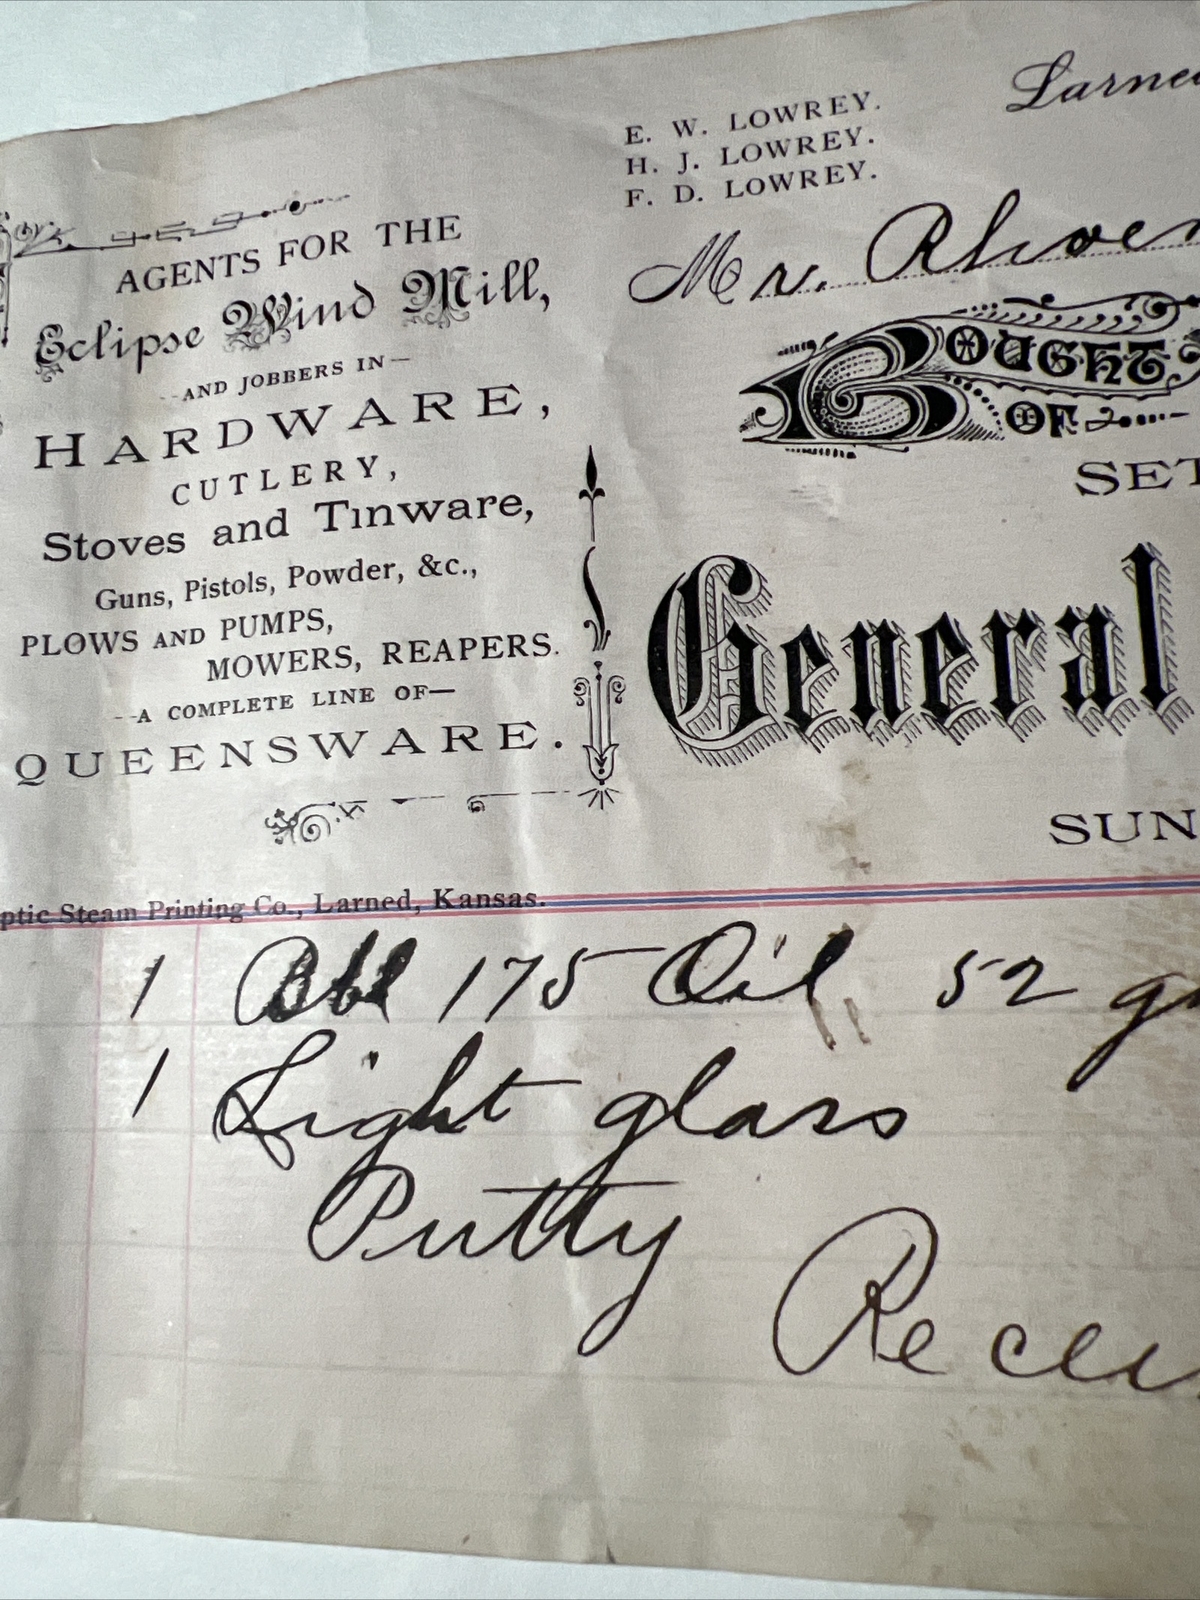 E. W. LOWREY.
H. J. LOWREY.
F. D. LOWREY.
Larned
Mr.
BOUGHT
OF
SET
General
SUN
AGENTS FOR THE
Eclipse Wind Mill,
--AND JOBBERS IN—
HARDWARE,
CUTLERY,
Stoves and Tinware,
Guns, Pistols, Powder, &c.,
PLOWS AND PUMPS,
MOWERS, REAPERS.
--A COMPLETE LINE OF—
QUEENSWARE.
ptic Steam Printing Co., Larned, Kansas.
1 Bbl 175 Oil 52 g
1 Light glass
Putty
Recei